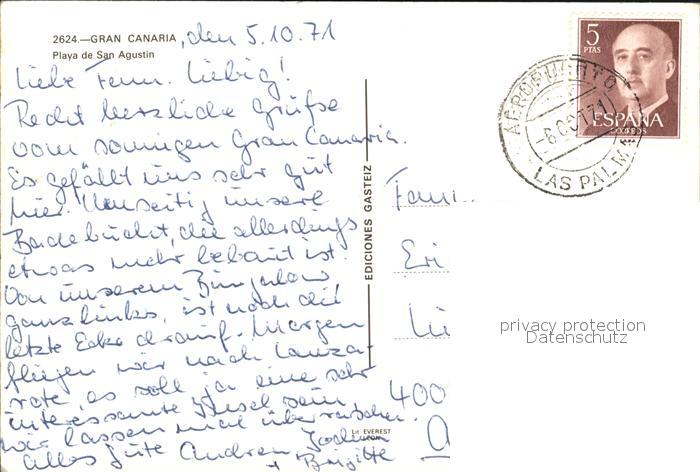 2624.—GRAN CANARIA, den 5.10.71
Playa de San Agustin
Liebe Fam. Liebig!
Recht herzliche Grüße
vom sonnigen Gran Canaria.
Es gefällt uns sehr gut
hier. Umseitig unsere
Badebucht, die allerdings
etwas mehr bebaut ist.
Von unserem Bungalow
ganz links, ist noch die
letzte Ecke drauf. Morgen
fliegen wir nach Lanza-
rote, es soll ja eine sehr
interessante Insel sein
wir lassen mal überraschen.
Alles Gute Andrea, Jochen
+ Brigitte
EDICIONES GASTEIZ
Lit. EVEREST
LEON
5
PTAS
ESPAÑA
CORREOS
AEROPUERTO
-6 OCT 71
LAS PALMAS
Fam.
Eri
400
privacy protection
Datenschutz